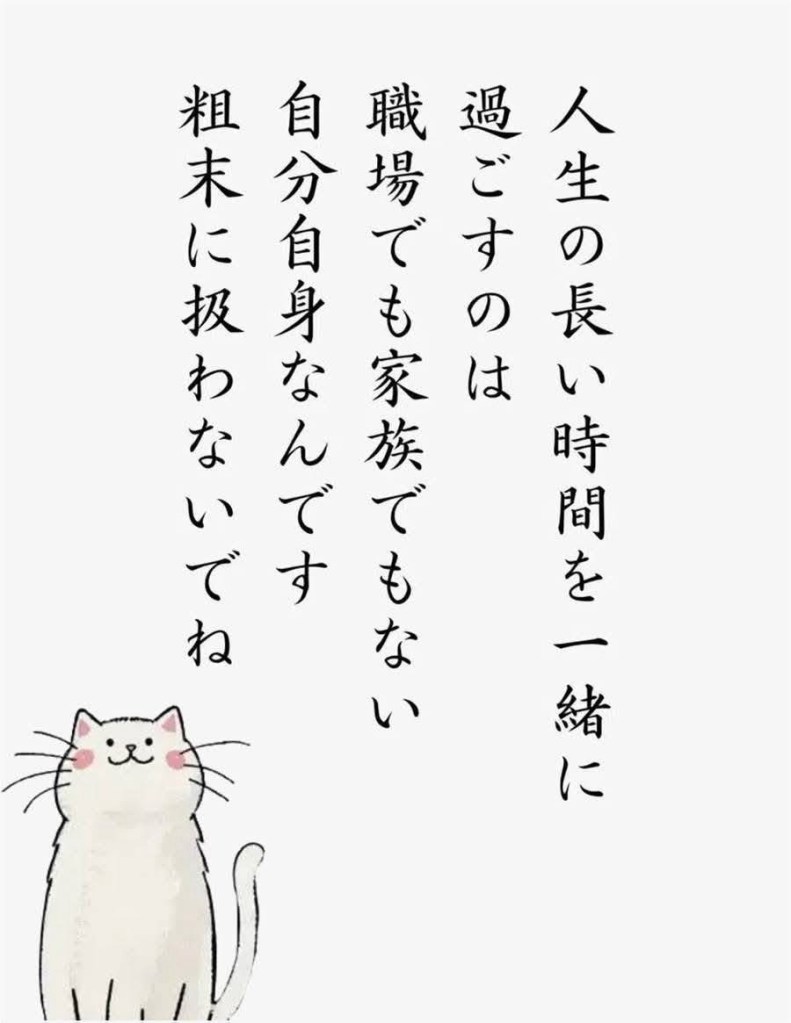 人生の長い時間を一緒に
過ごすのは
職場でも家族でもない
自分自身なんです
粗末に扱わないでね